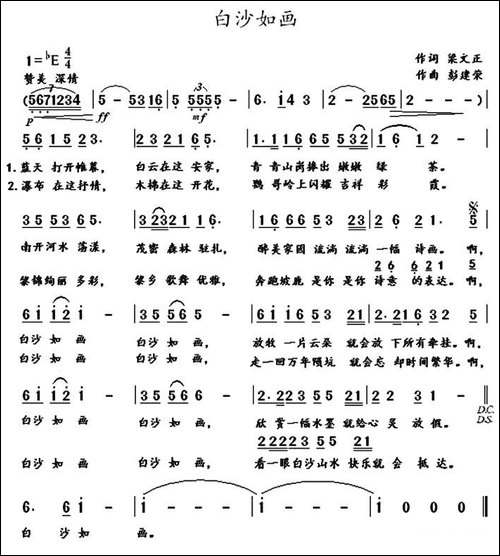 白沙如画
1=♭E 4/4
作词 梁文正
作曲 彭建荣
赞美 深情
(5671234 | 5 - 5316 | 5 5555 | 6. i43 | 2 - 2565 | 2 - - -) |
p ff mf
5 6 1 2 5 2 2. | 2 3 2 1 6 5. | 1. 1 1 6 6 5 5 3 2 | 1 6 1 2. |
1. 蓝天 打开帷幕, 白云在这 安家, 青青山岗捧出 嫩嫩 绿 茶。
2. 瀑布 在这抒情, 木棉在这 开花, 鹦哥岭上闪耀 吉祥 彩 霞。
3 5 5 3 6 5. | 3 2 3 2 1 6. | 1 6 6 6 5 3 2 3 | 2 6 2 1. 5 |
南开河水 荡漾, 茂密 森林 驻扎, 醉美家园 流淌 流淌 一幅 诗画。啊,
2 6 6 6 2 1 5
黎锦绚丽 多彩, 黎乡 歌舞 优雅, 奔跑坡鹿 是你 是你 诗意 的表达。啊,
6 i i 2 i | 3 5 5 6 5 | 1 6 6 1 6 5 3 2 2 1 | 2 2 3 1 2. 5 |
白沙 如 画, 白沙 如 画, 放牧 一片云朵 就会放 下所有牵挂。啊,
白沙 如 画 白沙 如 画, 走一回万年陨坑 就会忘 却时间繁华。啊,
6 i i 2 i | 3 5 5 6 6 | 2. 2 2 3 5 5 2 2 1 | 6 2 2 1. - ‖
D.C.
D.S.
白沙 如 画 白沙 如 画, 欣 赏一幅水墨 就给心 灵 放假。
2 2 2 3 5 5 5 2 1
白沙 如 画 白沙 如 画, 看一眼白沙山水 快乐就 会 抵达。
6. 6 i 2 | i - - - | i - - - | i - - - | i 0 0 0 ‖
白 沙 如 画。